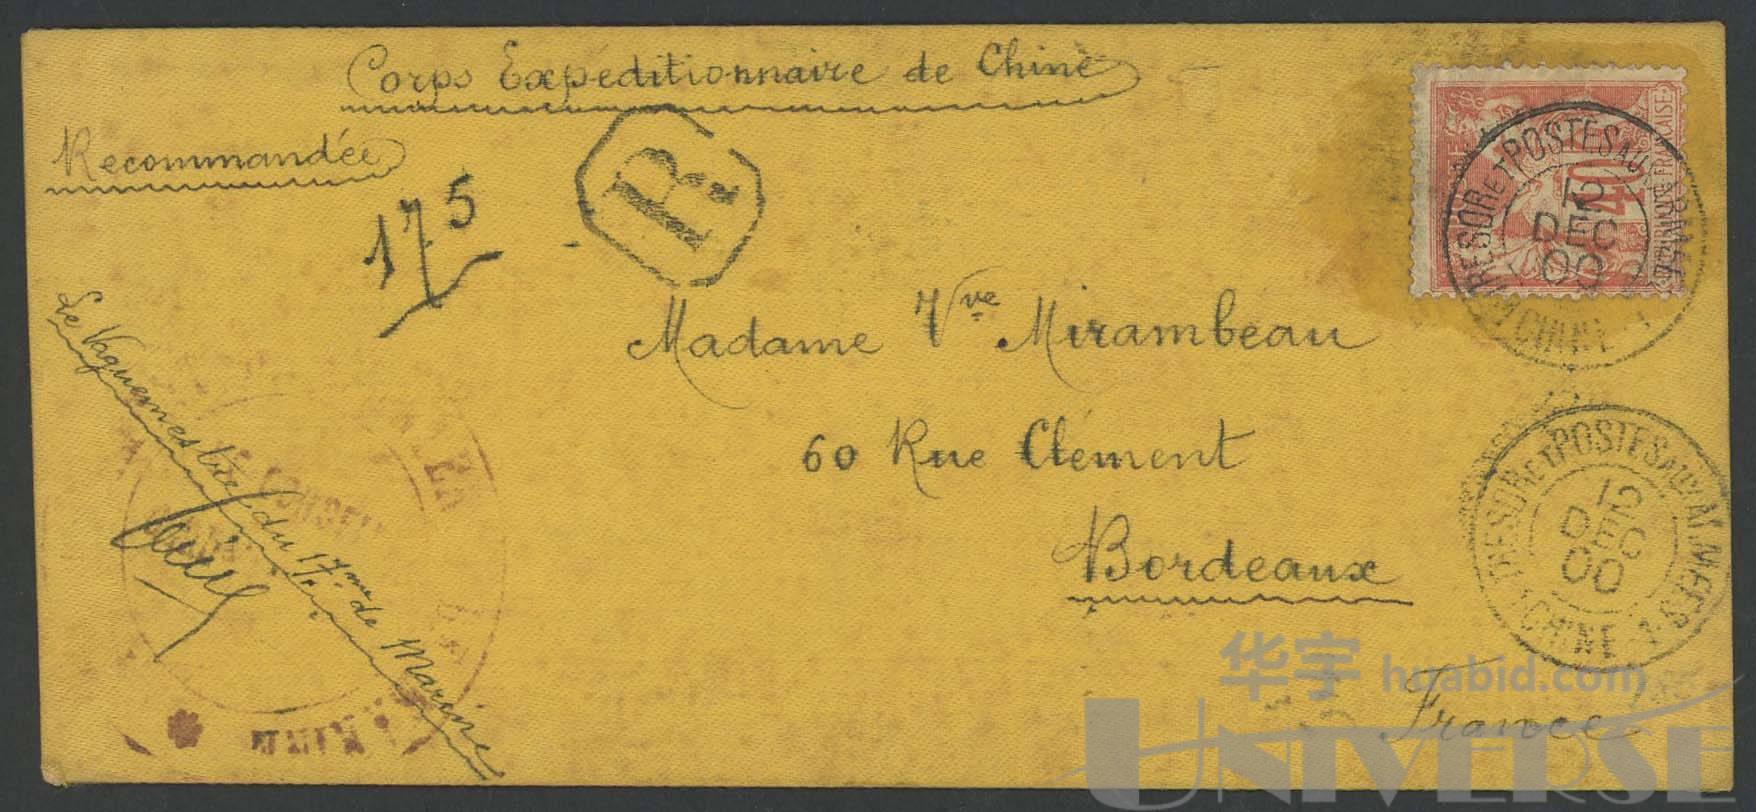 Corps Expeditionnaire de Chine
Recommandée
175
R
Madame Vve Mirambeau
60 Rue Clément
Bordeaux
France
Le Vaguemestre du 17me de Marine
40
REPUBLIQUE FRANCAISE
TRESOR ET POSTES AUX ARMEES
12
DEC
00
CHINE
TRESOR ET POSTES AUX ARMEES
12
DEC
00
CHINE
华宇 huabid.com
UNIVERSE